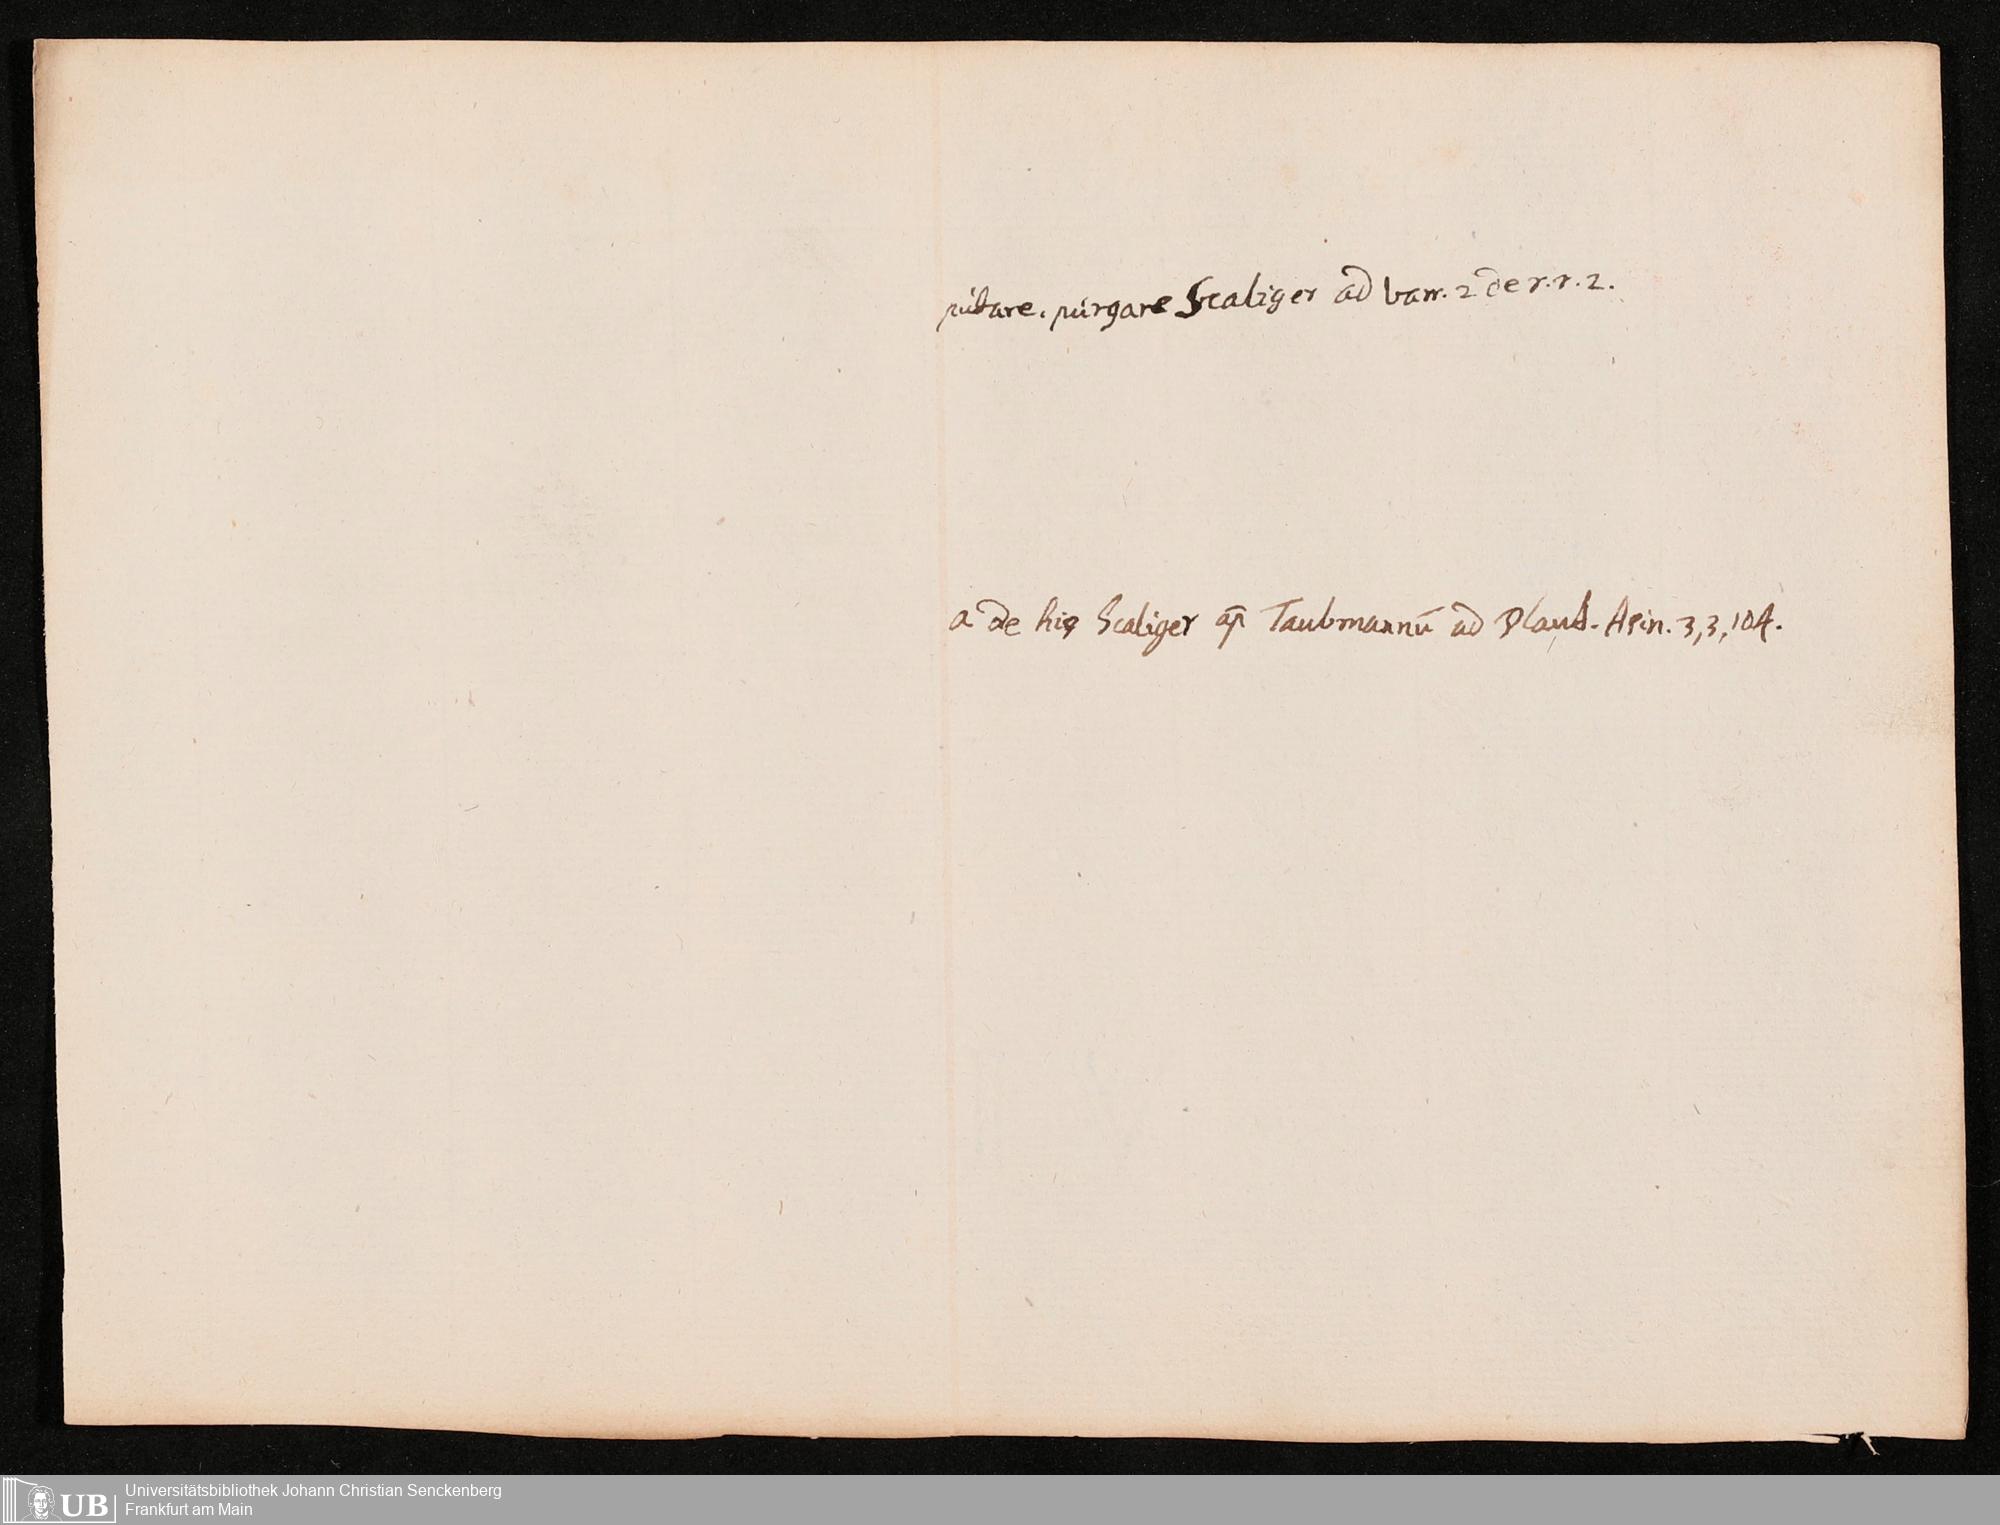 putare. purgare Scaliger ad Varr. 2 de r. r. 2.
a de his Scaliger ap̄ Taubmannū ad Plaut. Asin. 3,3,104.
UB
Universitätsbibliothek Johann Christian Senckenberg
Frankfurt am Main